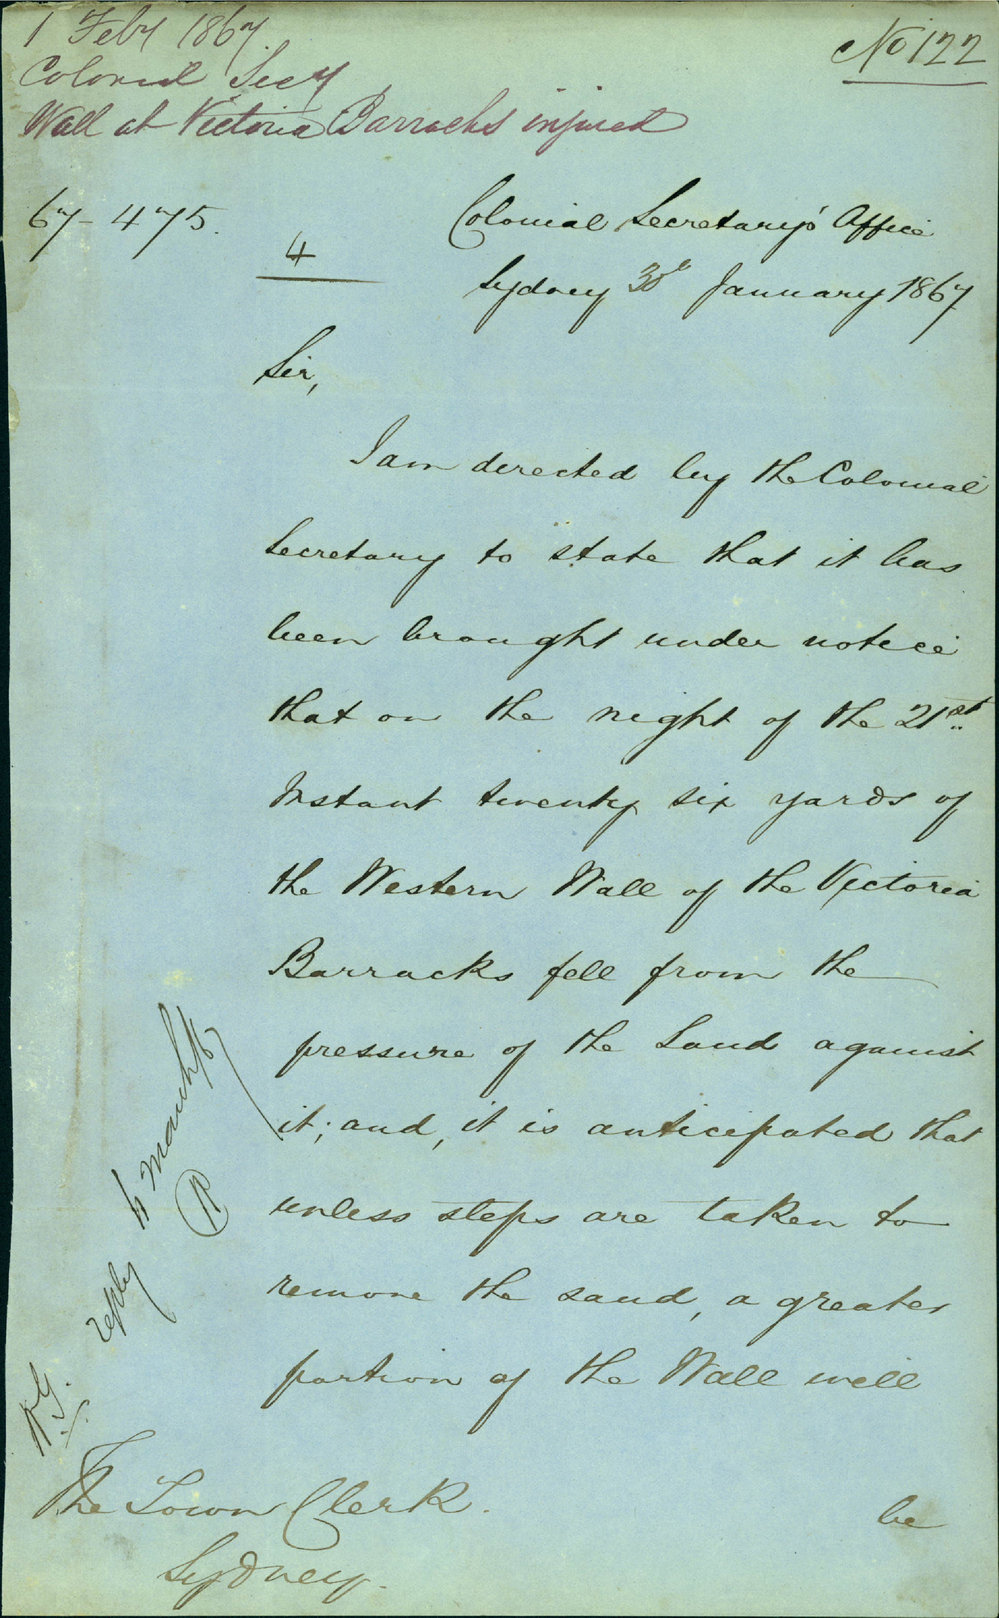 1 Feby 1867.
Colonial Secy
Wall at Victoria Barracks injured
No 122
67-475.
4
Colonial Secretary's Office
Sydney 30th January 1867
Sir,
I am directed by the Colonial
Secretary to state that it has
been brought under notice
that on the night of the 21st
Instant twenty six yards of
the Western Wall of the Victoria
Barracks fell from the
pressure of the Sand against
it; and, it is anticipated that
unless steps are taken to
remove the sand, a greater
portion of the Wall will
be
reply
The Town Clerk.
Sydney.